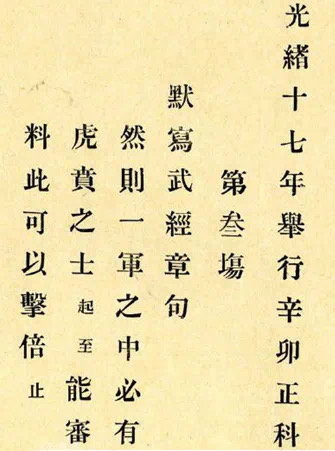 光緒十七年舉行辛卯正科
第叁塲
默寫武經章句
然則一軍之中必有
虎賁之士起至能審
料此可以擊倍止